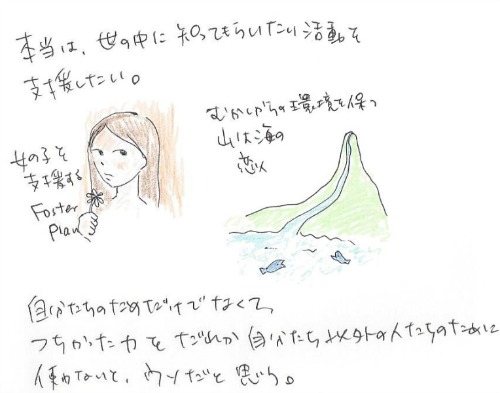 本当は、世の中に知ってもらいたい活動を
支援したい。
女の子を
支援する
Foster
Plan
むかしからの環境を保つ
山は海の
恋人
自分たちのためだけでなくて、
つちかった力をだれか自分たち以外の人たちのために
使わないと、ウソだと思う。